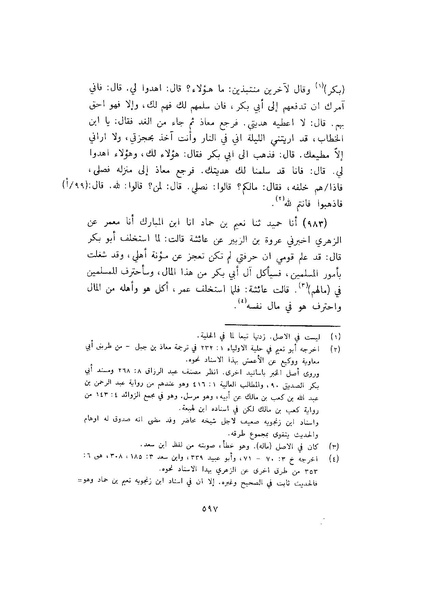 (بكر)(١) وقال لآخرين منتبذين: ما هؤلاء؟ قال: اهدوا لي. قال: فاني
آمرك ان تدفعهم إلى أبي بكر، فان سلمهم لك فهم لك، وإلا فهو احق
بهم. قال: لا اعطيه هديتي. فرجع معاذ ثم جاء من الغد فقال: يا ابن
الخطاب، قد اريتني الليلة اني في النار وأنت آخذ بحجزتي، ولا اراني
إلاّ مطيعك. قال: فذهب الى ابي بكر فقال: هؤلاء لك، وهؤلاء اهدوا
لي. قال: فانا قد سلمنا لك هديتك. فرجع معاذ إلى منزله فصلى،
فاذا/هم خلفه، فقال: مالكم؟ قالوا: نصلي. قال: لمن؟ قالوا: لله. قال:(٩٩/أ)
فاذهبوا فانتم لله(٢).
(٩٨٣) أنا حميد ثنا نعيم بن حماد انا ابن المبارك أنا معمر عن
الزهري اخبرني عروة بن الزبير عن عائشة قالت: لما استخلف أبو بكر
قال: قد علم قومي ان حرفتي لم تكن تعجز عن مؤنة أهلي، وقد شغلت
بأمور المسلمين، فسيأكل آل أبي بكر من هذا المال، وسأحترف للمسلمين
في (مالهم)(٣). قالت عائشة: فلما استخلف عمر، أكل هو وأهله من المال
واحترف هو في مال نفسه(٤).
(١) ليست في الاصل. زدتها تبعا لما في الحلية.
(٢) اخرجه أبو نعيم في حلية الاولياء ١: ٢٣٢ في ترجمة معاذ بن جبل - من طريق أبي
معاوية ووكيع عن الأعمش بهذا الاسناد نحوه.
وروى أصل الخبر بأسانيد اخرى. انظر مصنف عبد الرزاق ٨: ٢٦٨ ومسند أبي
بكر الصديق ٩٠، والمطالب العالية ١: ٤١٦ وهو عندهم من رواية عبد الرحمن بن
عبد الله بن كعب بن مالك عن أبيه، وهو مرسل. وهو في مجمع الزوائد ٤: ١٤٣ من
رواية كعب بن مالك لكن في اسناده ابن لهيعة.
واسناد ابن زنجويه ضعيف لاجل شيخه محاضر وقد مضى انه صدوق له اوهام
والحديث يتقوى بمجموع طرقه.
(٣) كان في الاصل (ماله). وهو خطأ، صوبته من لفظ ابن سعد.
(٤) اخرجه خ ٣: ٧٠ - ٧١، وأبو عبيد ٣٣٩، وابن سعد ٣: ١٨٥، ٣٠٨، هق ٦:
٣٥٣ من طرق اخرى عن الزهري بهذا الاسناد نحوه.
فالحديث ثابت في الصحيح وغيره. إلا ان في اسناد ابن زنجويه نعيم بن حماد وهو=
٥٩٧